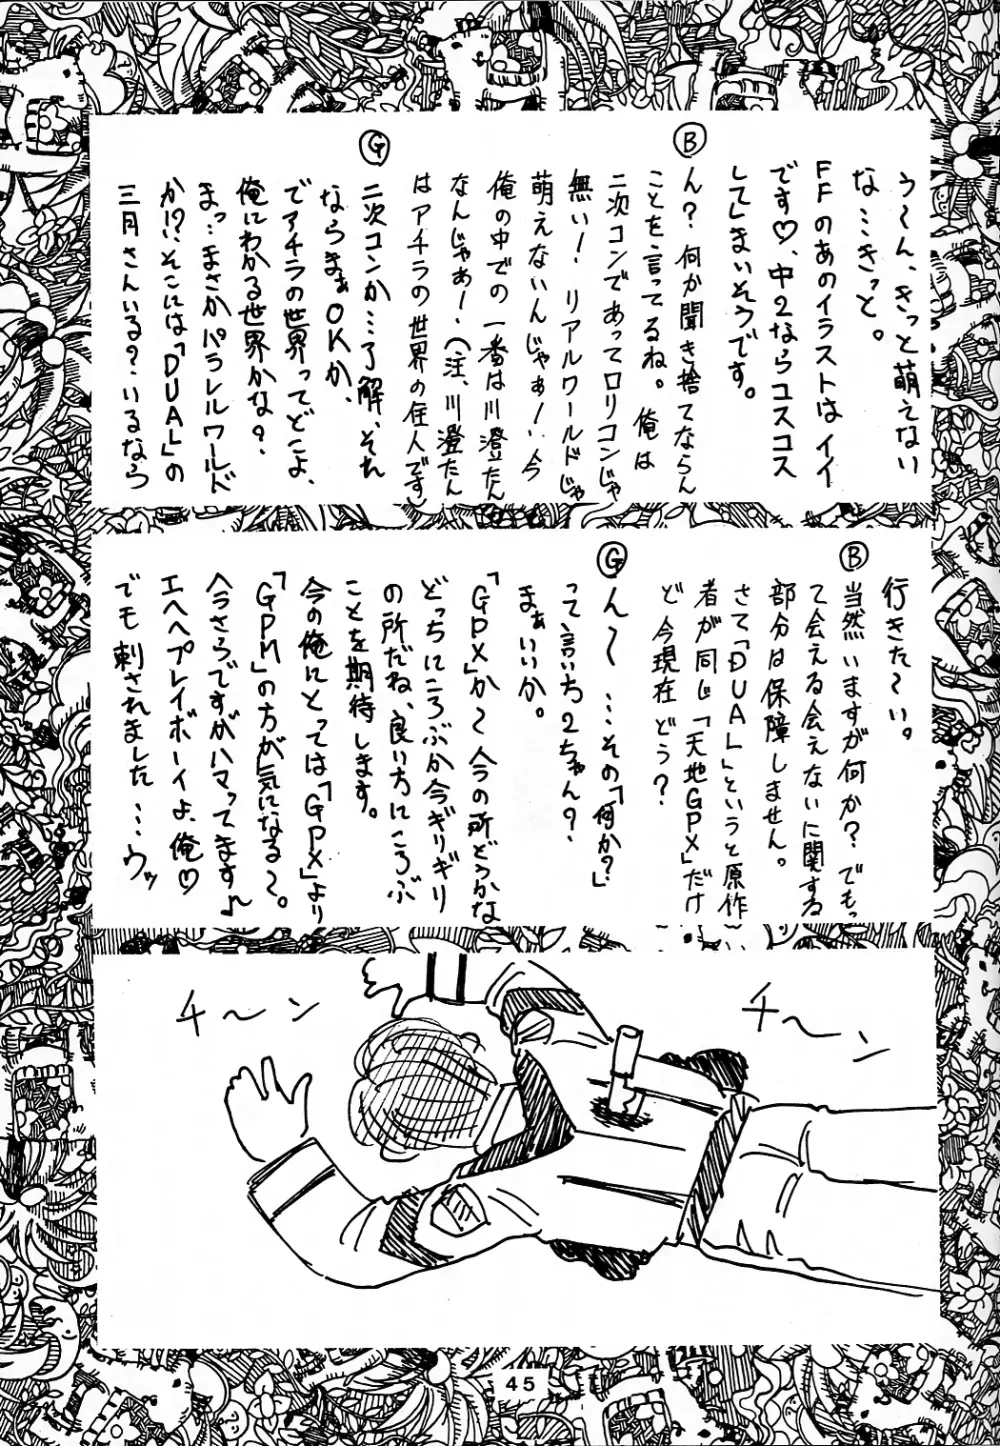 う〜ん、きっと萌えない
な…きっと。
FFのあのイラストはイイ
です♡、中2ならコスコス
してしまいそうです。
Ⓑ
ん?何か聞き捨てならん
ことを言ってるね。俺は
二次コンであってロリコンじゃ
無い! リアルワールドじゃ
萌えないんじゃぁ!、今
俺の中での一番は川澄たん
なんじゃぁ!、(注、川澄たん
はアチラの世界の住人です)
Ⓖ
二次コンか…了解、それ
ならまぁOKか、
でアチラの世界ってどこよ、
俺にわかる世界かな?
まっ…まさかパラレルワールド
か!?、そこには「DUAL」の
三月さんいる?いるなら
行きた〜い。
Ⓑ
当然いますが何か?でもっ
て会える会えないに関する
部分は保障しません。
さて「DUAL」というと原作
者が同じ「天地GPX」だけ
ど今現在どう?
Ⓖ
ん〜…その「何か?」
って言いち2ちゃん?
まぁいいか。
「GPX」か〜今の所どうかな
どっちにころぶか今ギリギリ
の所だね、良い方にころぶ
ことを期待します。
今の俺にとっては「GPX」より
「GPM」の方が気になる〜。
今さらですがハマってます♪
エヘヘプレイボーイよ、俺♡
でも刺されました…ウッ
チ〜ン
チ〜ン
45